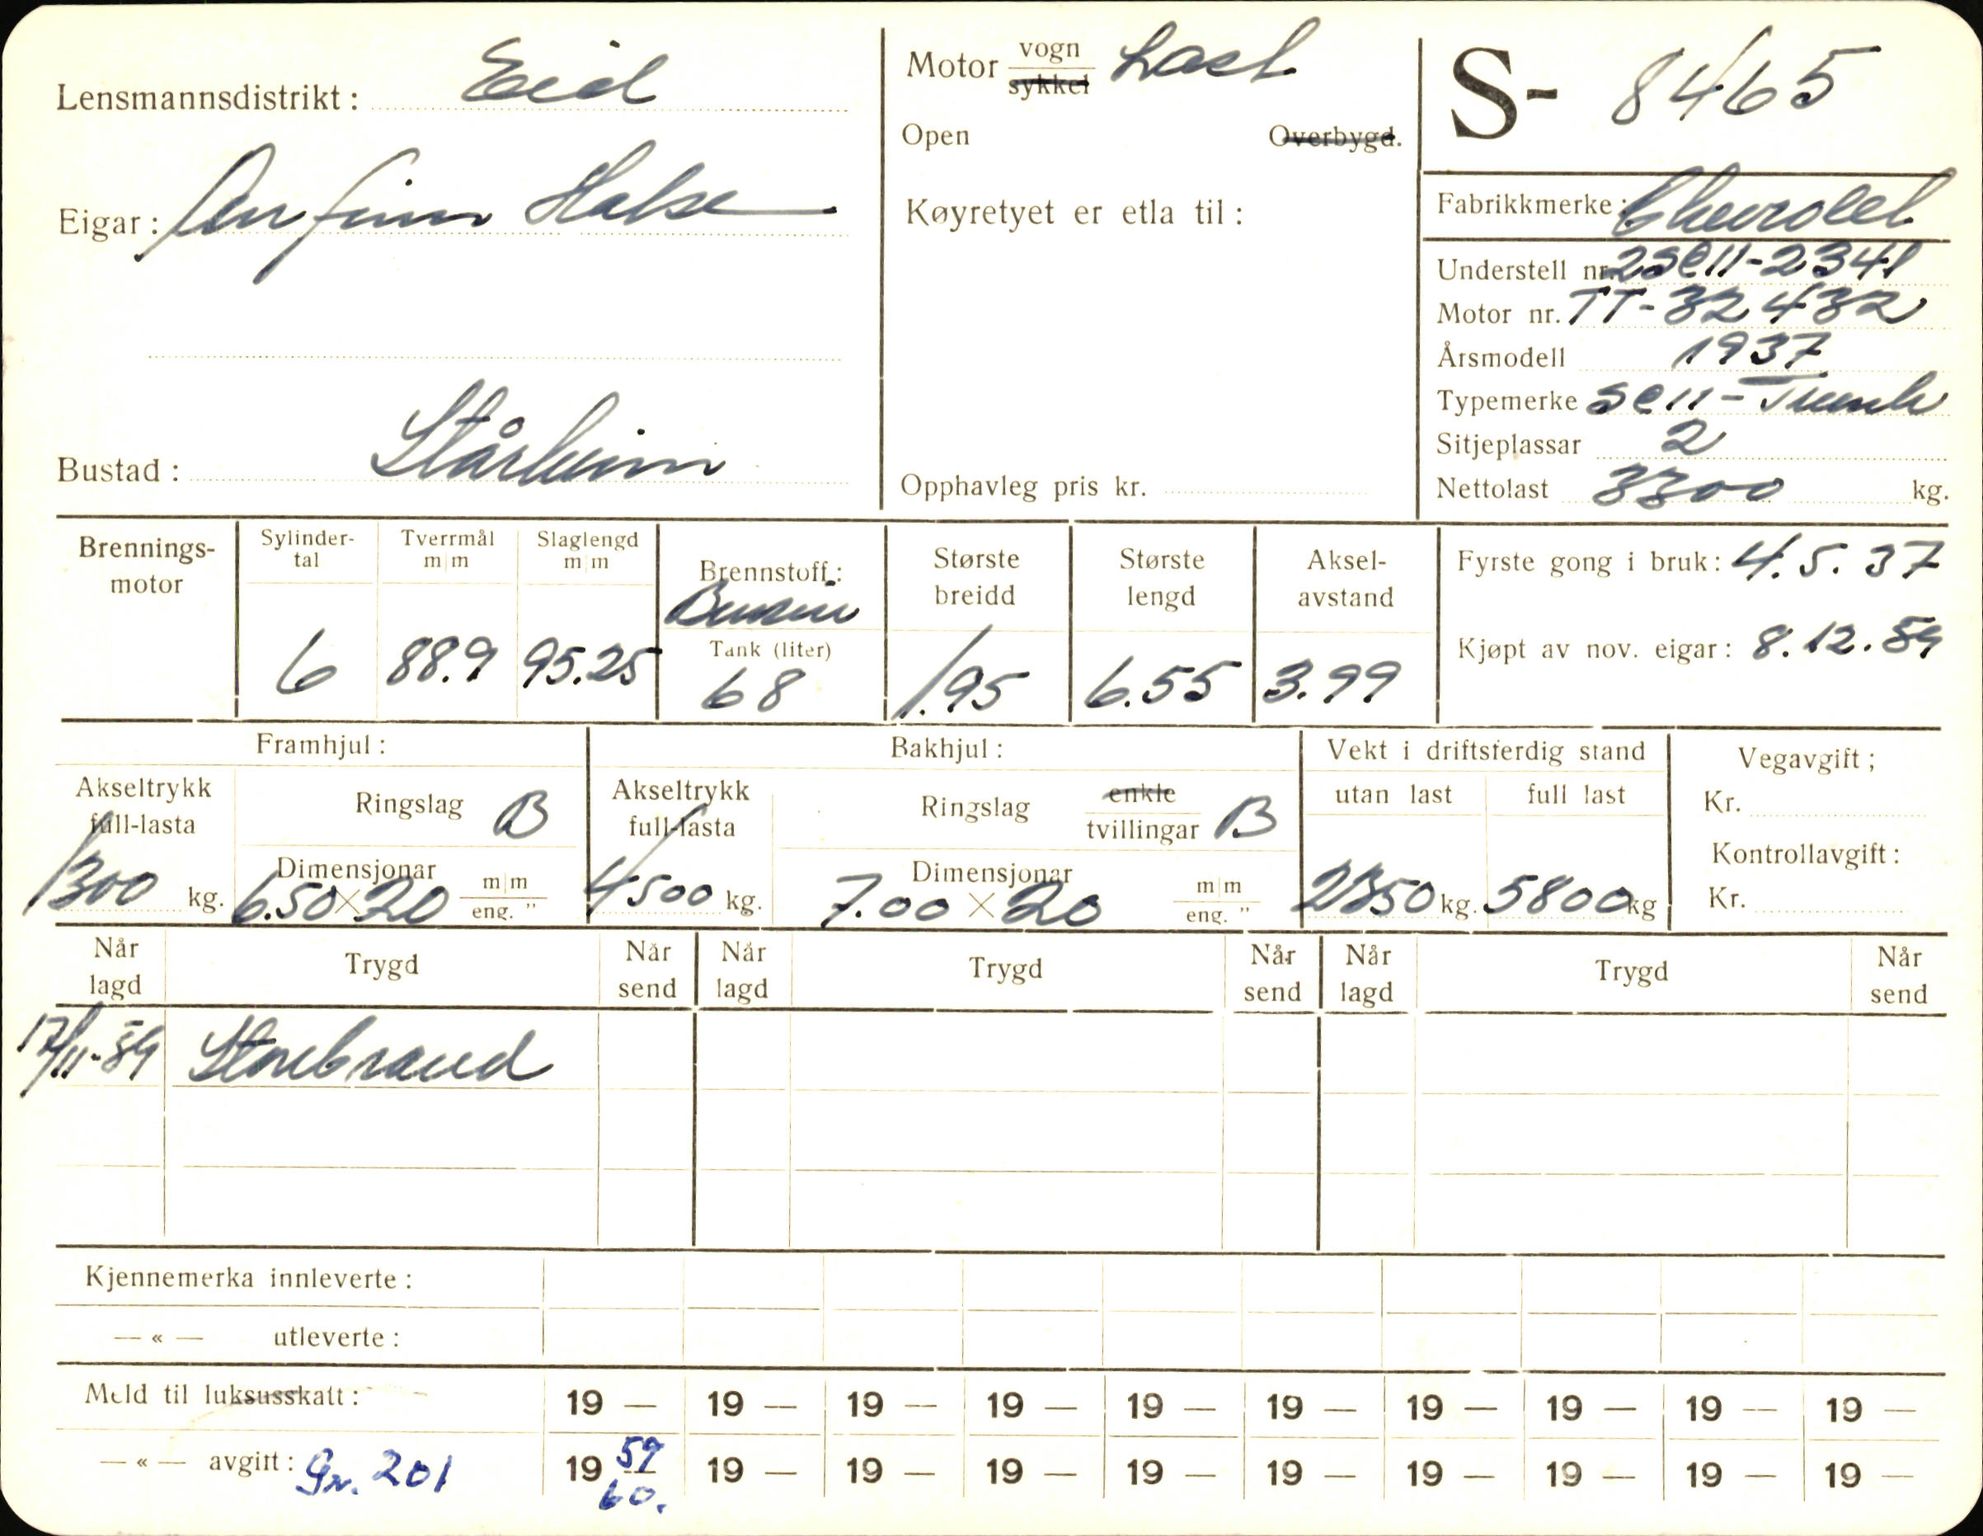 Lensmannsdistrikt: Eid
Eigar: Arnfinn Halse
Bustad: Stårheim
Motor vogn Last
sykkel
Open Overbygd.
Køyretyet er etla til:
Opphavleg pris kr.
S- 8465
Fabrikkmerke: Chevrolet
Understell nr. 2SC11-2341
Motor nr. TT-32432
Årsmodell 1937
Typemerke SC11-Trunk
Sitjeplassar 2
Nettolast 3300 kg.
Brennings-
motor
Sylinder-
tal
6
Tverrmål
m|m
88.9
Slaglengd
m|m
95.25
Brennstoff: Bensin
Tank (liter)
68
Største
breidd
1.95
Største
lengd
6.55
Aksel-
avstand
3.99
Fyrste gong i bruk: 4.5.37
Kjøpt av nov. eigar: 8.12.59
Framhjul:
Akseltrykk
full-lasta
1300 kg.
Ringslag B
Dimensjonar
6.50 × 20 m|m
eng. "
Bakhjul:
Akseltrykk
full-lasta
4500 kg.
Ringslag enkle
tvillingar B
Dimensjonar
7.00 × 20 m|m
eng. "
Vekt i driftsferdig stand
utan last full last
2350 kg. 5800 kg
Vegavgift;
Kr.
Kontrollavgift:
Kr.
Når
lagd
Trygd
Når
send
Når
lagd
Trygd
Når
send
Når
lagd
Trygd
Når
send
17/11-59 Storebrand
Kjennemerka innleverte:
— « — utleverte:
Meld til luksusskatt: 19 — 19 — 19 — 19 — 19 — 19 — 19 — 19 — 19 — 19 —
— « — avgift: Gr. 201 19 59 — 19 — 19 — 19 — 19 — 19 — 19 — 19 — 19 — 19 —
60.